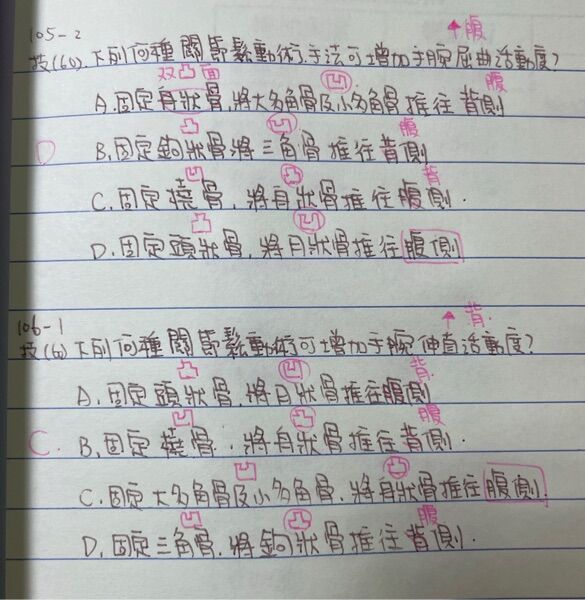 105-2
↑腹
技(60).下列何種關節鬆動術手法可增加手腕屈曲活動度?
双凸面 凹 腹
A.固定舟狀骨,將大多角骨及小多角骨推往背側
凸 凹 腹
D B.固定鉤狀骨將三角骨推往背側
凹 凸 背
C.固定橈骨,將舟狀骨推往腹側.
凸 凹
D.固定頭狀骨,將月狀骨推往腹側
106-1
↑背.
技(60)下列何種關節鬆動術可增加手腕伸直活動度?
凸 凹 背.
A.固定頭狀骨,將月狀骨推往腹側
凹 凸 腹
C. B.固定橈骨.將舟狀骨推往背側.
凹 凸
C.固定大多角骨及小多角骨,將舟狀骨推往腹側.
凹 凸 腹
D.固定三角骨,將鉤狀骨推往背側.